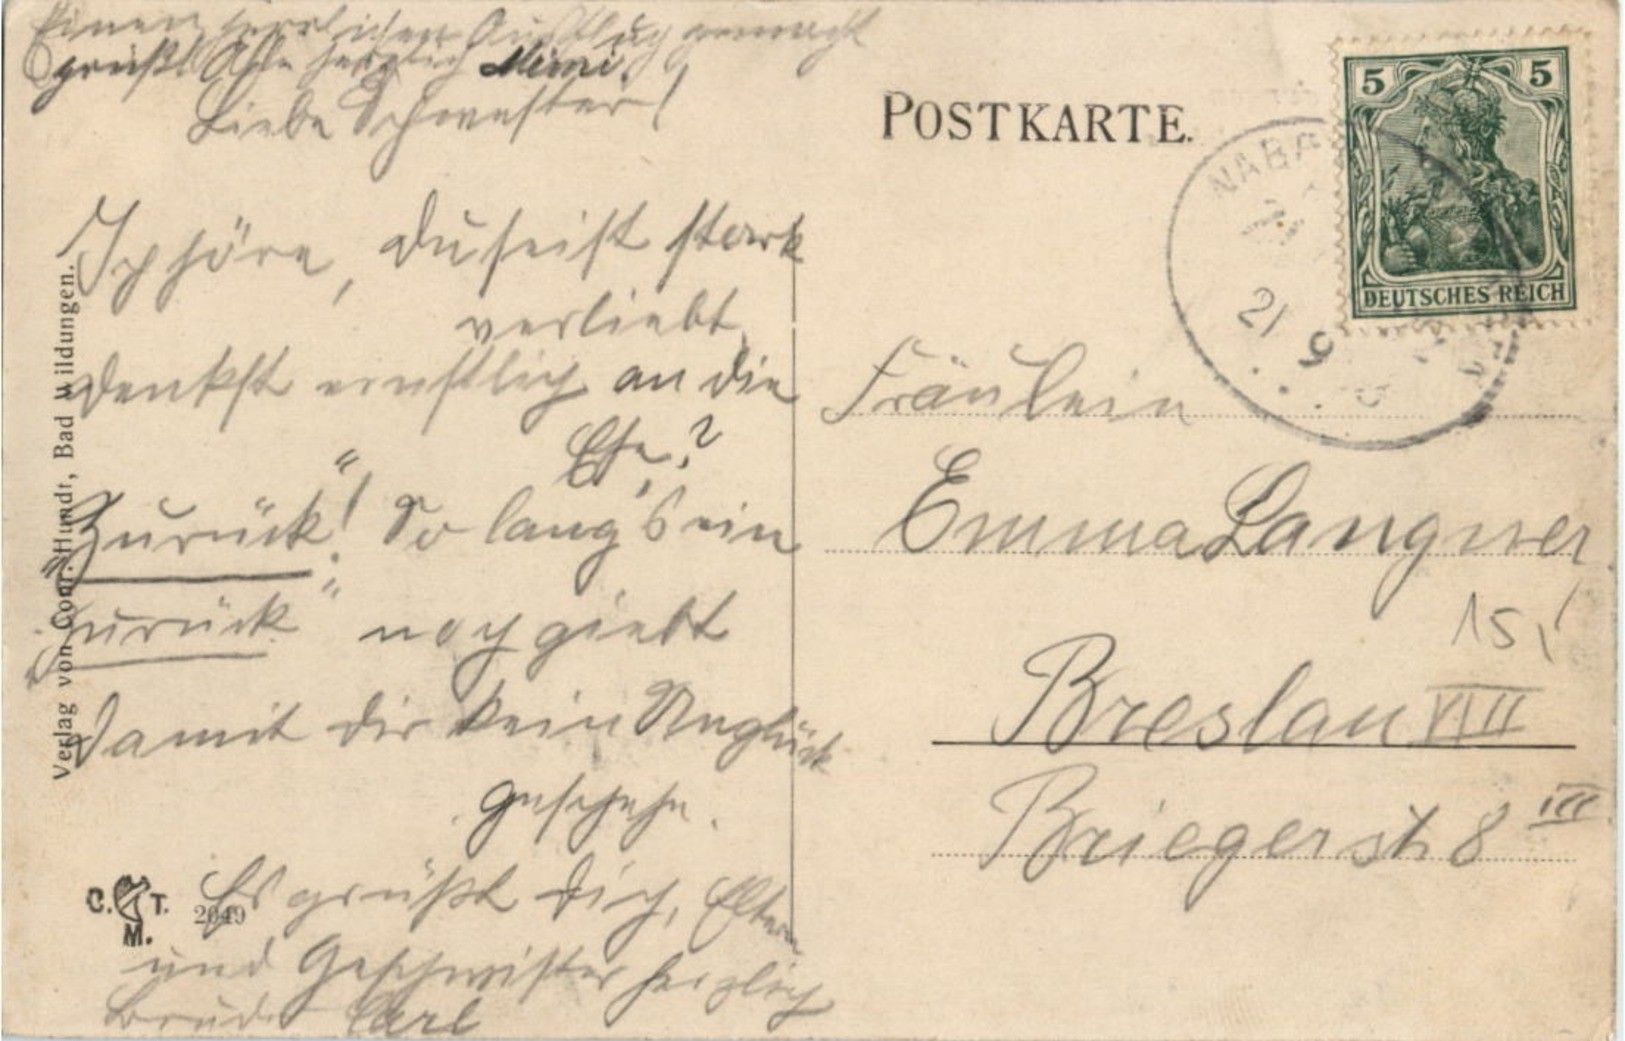 Einen herrlichen Ausflug gemacht
grüßt Alle herzlich Mimi.
Liebe Schwester!
Ich höre, du seist stark
verliebt,
denkst ernstlich an die
Ehe?
„Zurück“! So lang's ein
„zurück“ noch giebt
damit dir kein Unglück
geschehe.
Es grüßt dich, Eltern
und Geschwister herzlich
Bruder Carl
Verlag von Conr. Hundt, Bad Wildungen.
C. T.
M.
2049
POSTKARTE.
5 5
DEUTSCHES REICH
21 9
Fräulein
Emma Langner
15
Breslau VIII
Briegerst. 8 III